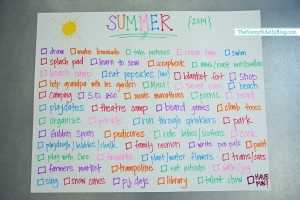 TheSunnySideUpBlog.com
SUMMER {2014}
□ draw □ make lemonade □ take pictures □ create time □ swim
□ splash pad □ learn to sew □ scrapbook □ smores/roast marshmallows
□ beach camp □ eat popsicles □ blanket fort □ shop
□ help grandpa with his garden □ Maui! □ beach
□ Camping □ S.D. Zoo □ movie marathons □ picnic □ read
□ playdates □ theatre camp □ board games □ climb trees
□ organize □ parade □ run through sprinklers □ park
□ Golden Spoon □ pedicures □ ride bikes/scooters □ cook
□ playdough/bubbles/chalk □ family reunion □ write pen pals □ paint
□ play with Coco □ fireworks □ plant water flowers □ trains/cars
□ farmers market □ trampoline □ eat outside □ walk/jog
□ sing □ snow cones □ p.j. days □ library □ talent show □ HAVE FUN!